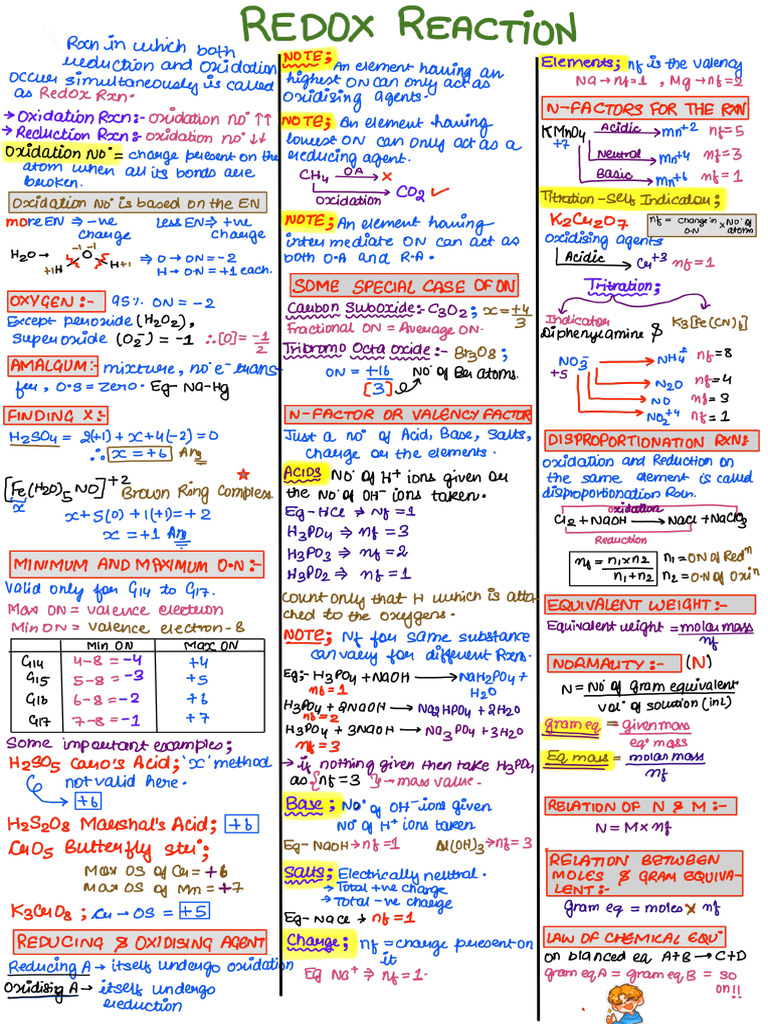 REDOX REACTION
Rxn in which both
reduction and Oxidation
occur simultaneously is called
as Redox Rxn.
→ Oxidation Rxn:- oxidation no· ↑↑
→ Reduction Rxn: oxidation no· ↓↓
Oxidation No· = change present on the
atom when all its bonds are
broken.
Oxidation No· is based on the EN
more EN ⇒ -ve
change
less EN ⇒ +ve
change
H2O →
-1 -1
O
+1H H+1
⇒ O → ON = -2
H → O·N = +1 each.
OXYGEN :- 95% ON = -2
Except peroxide (H2O2),
superoxide (O2⁻) = -1 ∴[O] = -1/2
AMALGUM:- mixture, no e⁻ trans-
fer, O·S = zero. Eg- Na-Hg
FINDING X:-
H2SO4 = 2(+1) + x + 4(-2) = 0
∴ x = +6 Ans
[Fe(H2O)5NO]+2 Brown Ring Complex
x
x + 5(0) + 1(+1) = +2
x = +1 Ans
MINIMUM AND MAXIMUM O·N:-
Valid only for G14 to G17.
Max ON = valence electron
Min ON = valence electron - 8
Min ON Max ON
G14 4-8 = -4 +4
G15 5-8 = -3 +5
G16 6-8 = -2 +6
G17 7-8 = -1 +7
Some important examples;
H2SO5 caro's Acid; 'x' method
not valid here.
+6
H2S2O8 Marshal's Acid; +6
CrO5 Butterfly str;
Max OS of Cr = +6
Max OS of Mn = +7
K3CrO8; Cr → OS = +5
REDUCING & OXIDISING AGENT
Reducing A → itself undergo oxidation
Oxidising A → itself undergo
reduction
NOTE; An element having an
highest ON can only act as
Oxidising agents.
NOTE; An element having
lowest ON can only act as a
reducing agent.
CH4 OA → ×
Oxidation → CO2 ✓
NOTE; An element having
intermediate ON can act as
both O.A and R.A.
SOME SPECIAL CASE OF ON
Carbon Suboxide:- C3O2; x = +4/3
Fractional ON = Average ON.
Tribromo Octa oxide:- Br3O8;
ON = +16/[3] No· of Br atoms.
N-FACTOR OR VALENCY FACTOR
Just a no· of Acid, Base, Salts,
Charge or the elements.
ACIDS No· of H+ ions given or
the No· of OH⁻ ions taken.
Eg-HCl ⇒ Nf = 1
H3PO4 ⇒ nf = 3
H3PO3 ⇒ nf = 2
H3PO2 ⇒ nf = 1
Count only that H which is atta-
ched to the oxygens.
NOTE; Nf for same substance
can vary for different Rxn.
Eg:- H3PO4 + NaOH → NaH2PO4 +
nf = 1 H2O
H3PO4 + 2NaOH → Na2HPO4 + 2H2O
nf = 2
H3PO4 + 3NaOH → Na3PO4 + 3H2O
nf = 3
→ if nothing given then take H3PO4
as {nf = 3 } → max value.
Base; No· of OH⁻ ions given
No· of H+ ions taken
Eg- NaOH → nf = 1 Al(OH)3 → nf = 3
Salts; Electrically neutral.
→ Total +ve charge
→ Total -ve charge
Eg- NaCl → nf = 1
Charge; nf = charge present on
it
Eg Na+ ⇒ nf = 1.
Elements; nf is the valency
Na → nf = 1, Mg → nf = 2
N-FACTORS FOR THE RXN
KMnO4 Acidic → mn+2 nf = 5
+7
Neutral → mn+4 nf = 3
Basic → mn+6 nf = 1
Titration - self Indicator;
K2Cr2O7 nf = change in O·N × No· of atoms
Oxidising agents
Acidic → Cr+3 nf = 1
Tritration;
Indicator
Diphenylamine & K3[Fe(CN)6]
NO3⁻ → NH4+ nf = 8
+5
N2O nf = 4
NO nf = 3
NO2+4 nf = 1
DISPROPORTIONATION RXN:
Oxidation and Reduction on
the same element is called
disproportionation Rxn.
Oxidation
Cl2 + NaOH → NaCl + NaClO3
Reduction
nf = n1×n2 / n1+n2
n1 = ON of Redn
n2 = O·N of Oxin
EQUIVALENT WEIGHT:-
Equivalent weight = molar mass / nf
NORMALITY :- (N)
N = No· of gram equivalent / vol· of solution (in L)
gram eq = given mass / eq· mass
Eq mass = molar mass / nf
RELATION OF N & M:-
N = M × nf
RELATION BETWEEN
MOLES & GRAM EQUIVA-
LENT:-
Gram eq = moles × nf
LAW OF CHEMICAL EQU·
on blanced eq A+B → C+D
gram eq A = gram eq B = so
on!!